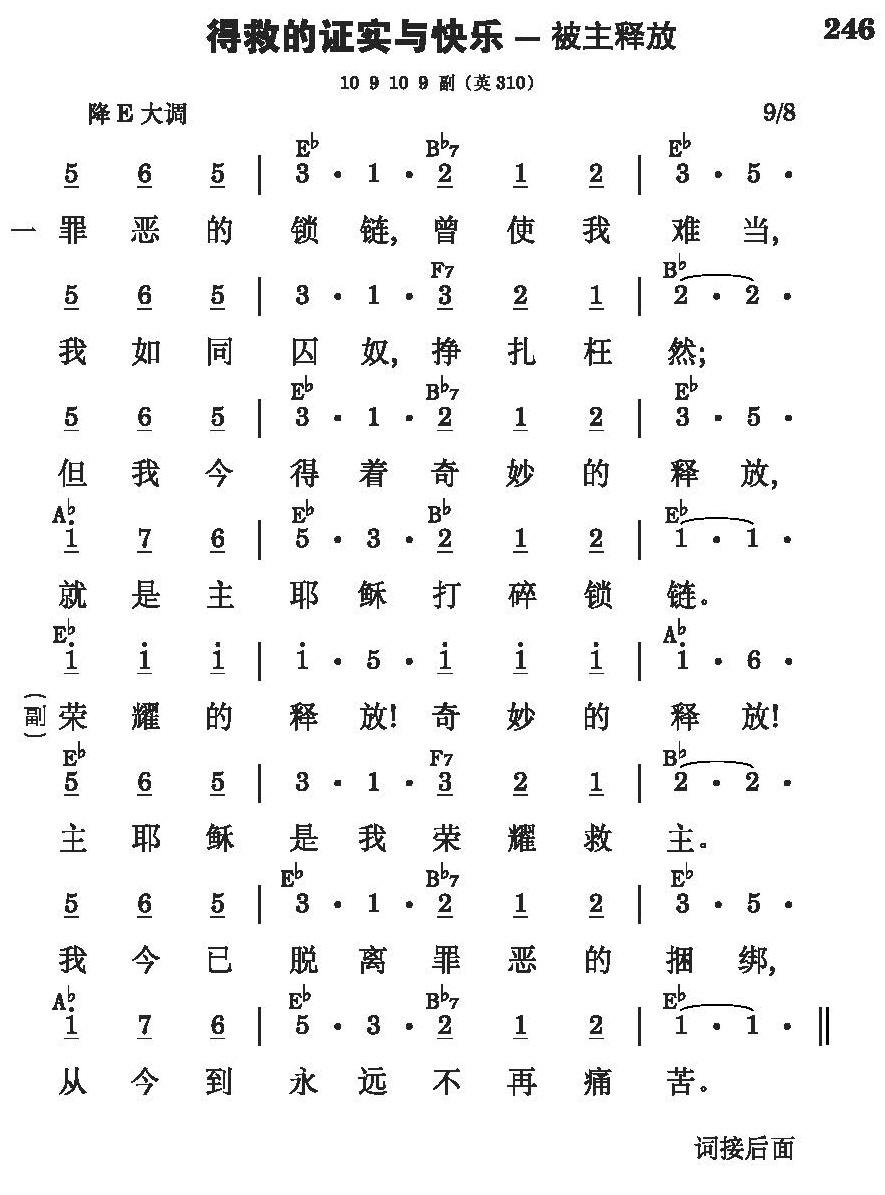 得救的证实与快乐 — 被主释放 246
10 9 10 9 副（英310）
降 E 大调 9/8
E♭ B♭7 E♭
5 6 5 | 3 · 1 · 2 1 2 | 3 · 5 ·
一 罪 恶 的 锁 链, 曾 使 我 难 当,
F7 B♭
5 6 5 | 3 · 1 · 3 2 1 | 2 · 2 ·
我 如 同 囚 奴, 挣 扎 枉 然;
E♭ B♭7 E♭
5 6 5 | 3 · 1 · 2 1 2 | 3 · 5 ·
但 我 今 得 着 奇 妙 的 释 放,
A♭ E♭ B♭ E♭
1̇ 7 6 | 5 · 3 · 2 1 2 | 1 · 1 ·
就 是 主 耶 稣 打 碎 锁 链。
E♭ A♭
1̇ 1̇ 1̇ | 1̇ · 5 · 1̇ 1̇ 1̇ | 1̇ · 6 ·
(副) 荣 耀 的 释 放! 奇 妙 的 释 放!
E♭ F7 B♭
5 6 5 | 3 · 1 · 3 2 1 | 2 · 2 ·
主 耶 稣 是 我 荣 耀 救 主。
E♭ B♭7 E♭
5 6 5 | 3 · 1 · 2 1 2 | 3 · 5 ·
我 今 已 脱 离 罪 恶 的 捆 绑,
A♭ E♭ B♭7 E♭
1̇ 7 6 | 5 · 3 · 2 1 2 | 1 · 1 · ‖
从 今 到 永 远 不 再 痛 苦。
词接后面